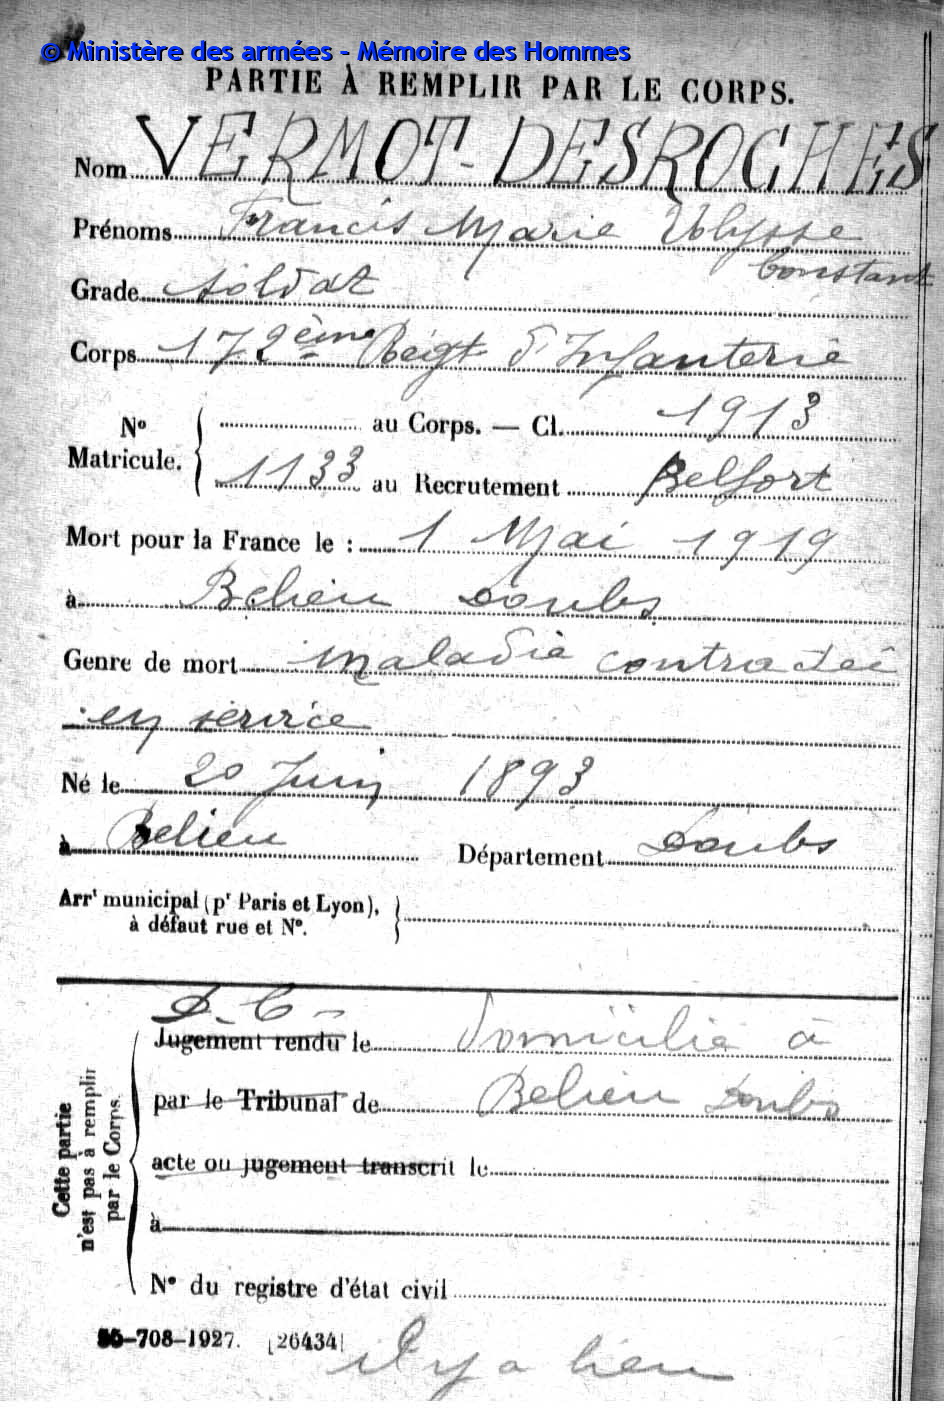 © Ministère des armées - Mémoire des Hommes
PARTIE À REMPLIR PAR LE CORPS.
Nom VERMOT-DESROCHES
Prénoms Francis Marie Ulysse
Constant
Grade soldat
Corps 172ème Régt d'Infanterie
N° Matricule. { au Corps. — Cl. 1913
1133 au Recrutement Belfort
Mort pour la France le : 1 Mai 1919
à Belieu Doubs
Genre de mort maladie contractée
en service
Né le 20 Juin 1893
à Belieu Département Doubs
Arrt municipal (pr Paris et Lyon),
à défaut rue et N°.
D. C.
Jugement rendu le Domicilié à
par le Tribunal de Belieu Doubs
acte ou jugement transcrit le
à
N° du registre d'état civil
Cette partie
n'est pas à remplir
par le Corps.
-708-1927. [26434]
il y a lieu